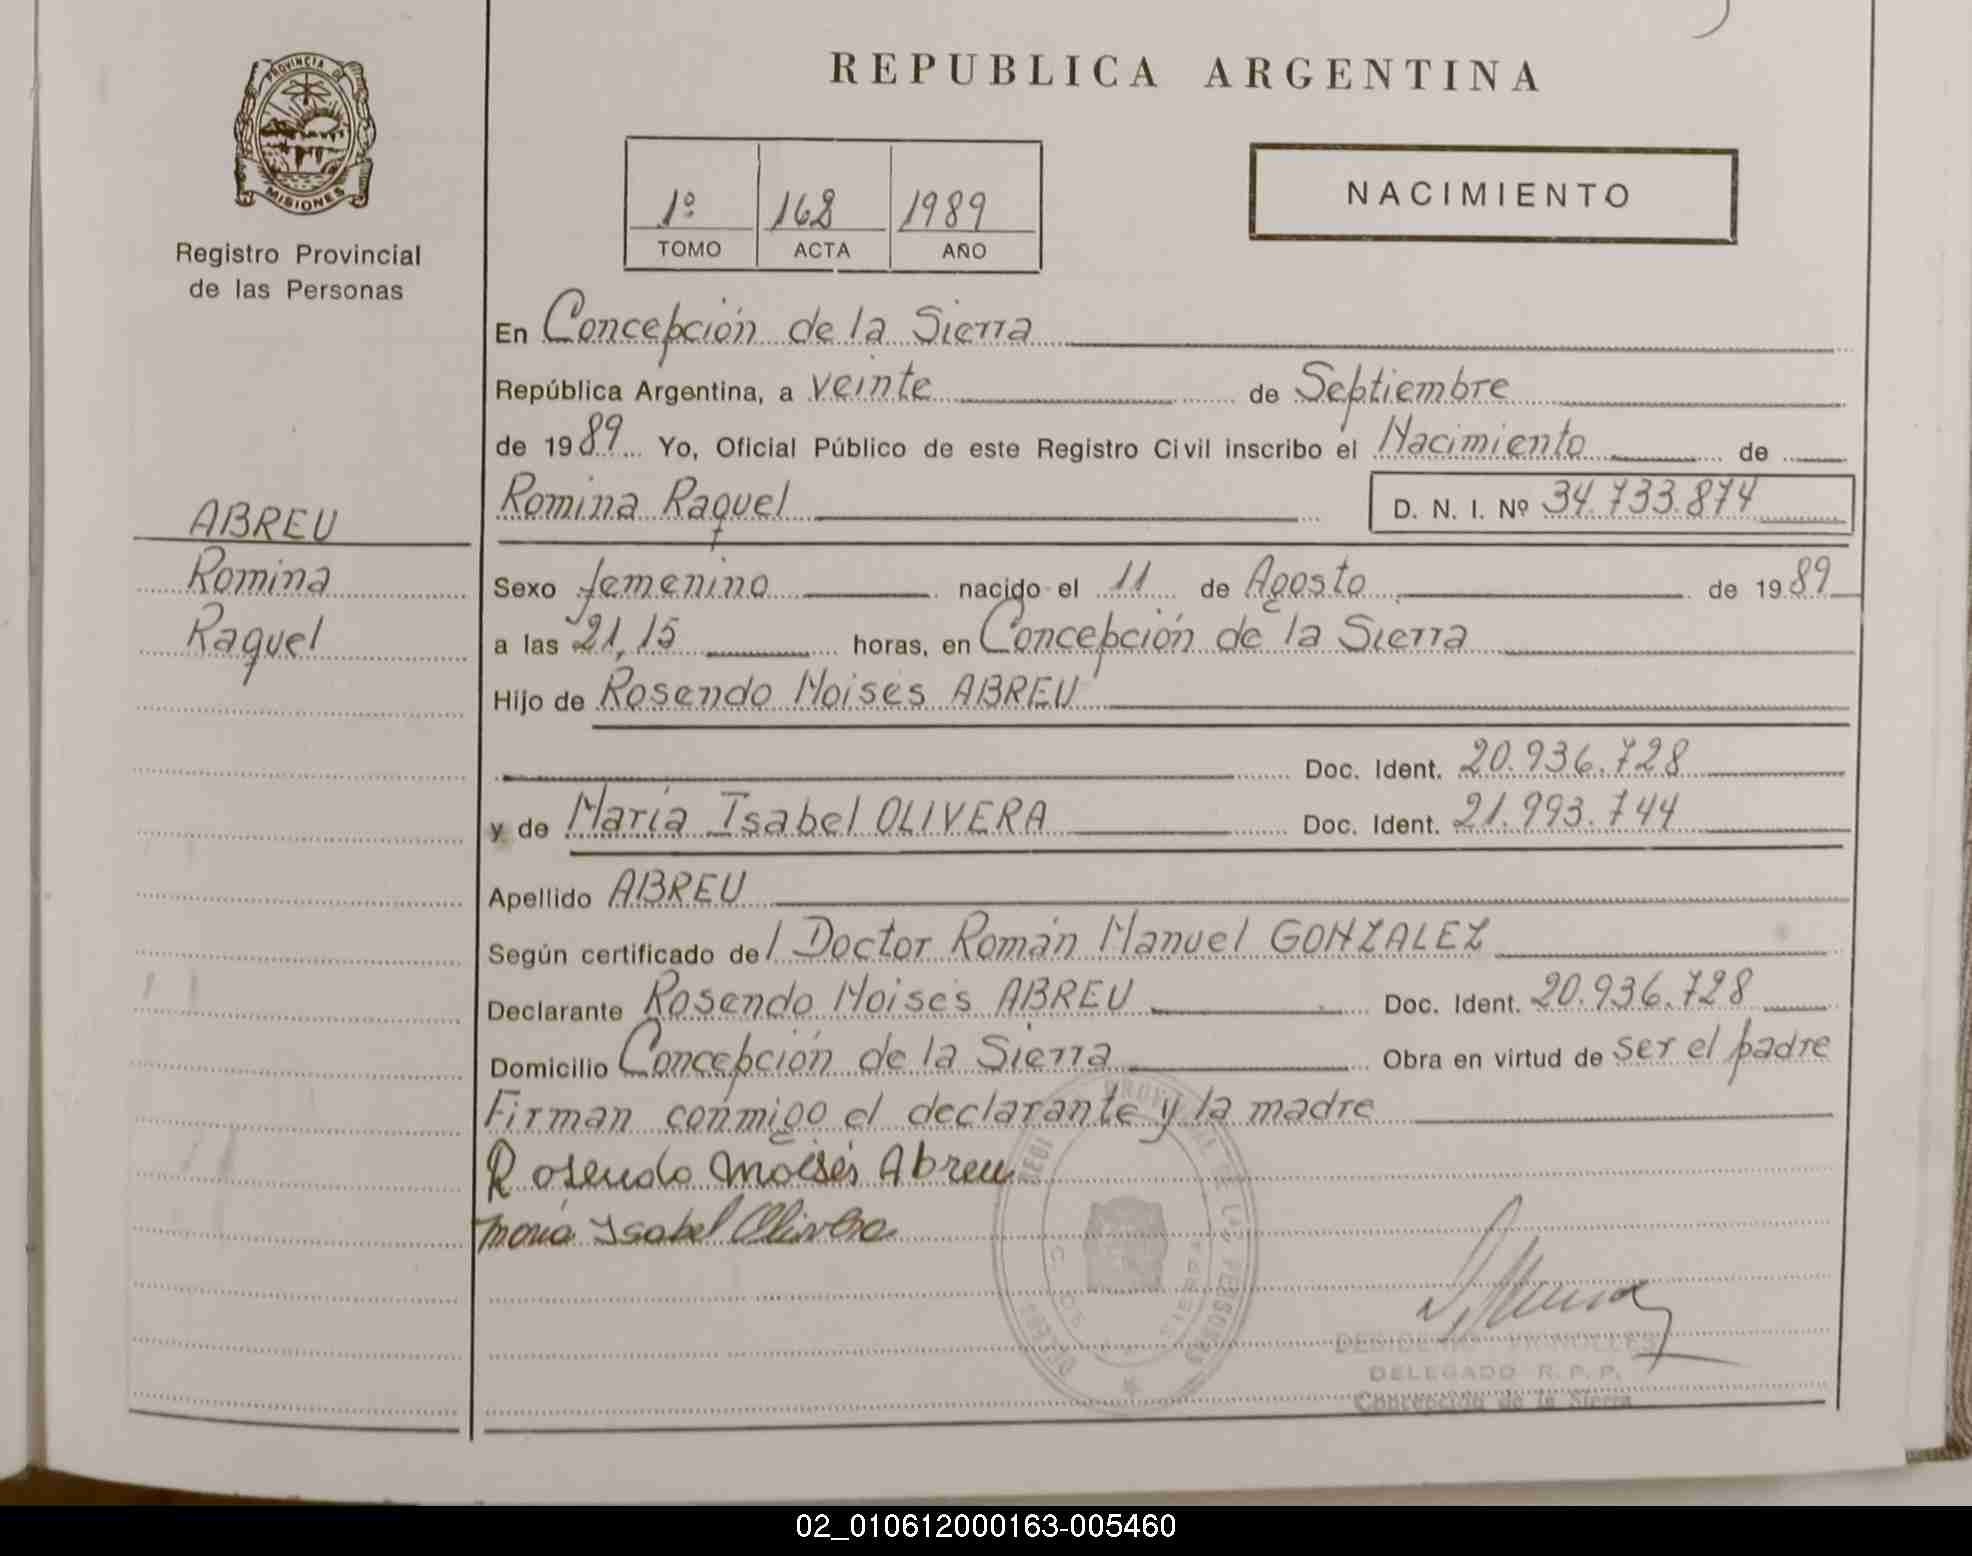 REPUBLICA ARGENTINA
PROVINCIA DE
MISIONES
Registro Provincial
de las Personas
1º 162 1989
TOMO ACTA AÑO
NACIMIENTO
En Concepción de la Sierra
República Argentina, a veinte de Septiembre
de 1989 Yo, Oficial Público de este Registro Civil inscribo el Nacimiento de
Romina Raquel D. N. I. Nº 34.733.874
ABREU
Romina
Raquel
Sexo femenino nacido el 11 de Agosto de 1989
a las 21,15 horas, en Concepción de la Sierra
Hijo de Rosendo Moisés ABREU
Doc. Ident. 20.936.728
y de María Isabel OLIVERA Doc. Ident. 21.993.744
Apellido ABREU
Según certificado del Doctor Román Manuel GONZALEZ
Declarante Rosendo Moisés ABREU Doc. Ident. 20.936.728
Domicilio Concepción de la Sierra Obra en virtud de ser el padre
Firman conmigo el declarante y la madre
Rosendo Moisés Abreu
María Isabel Olivera
DELEGADO R. P. P.
Concepción de la Sierra
02_010612000163-005460